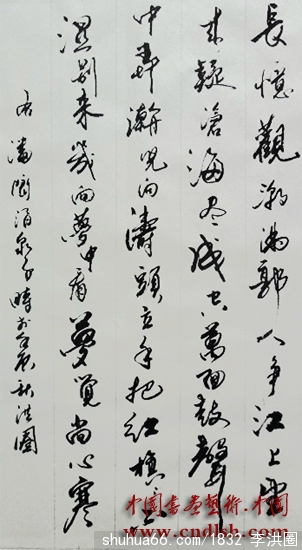 長憶觀潮滿郭人爭江上望
來疑滄海盡成空萬面鼓聲
中弄潮兒向濤頭立手把紅旗
濕別來幾向夢中看夢覺尚心寒
潘閬酒泉子時於辰秋洪圈
中国書畫藝術.中国
www.cndlsh.com
shuhua66.com/1832 李洪圈